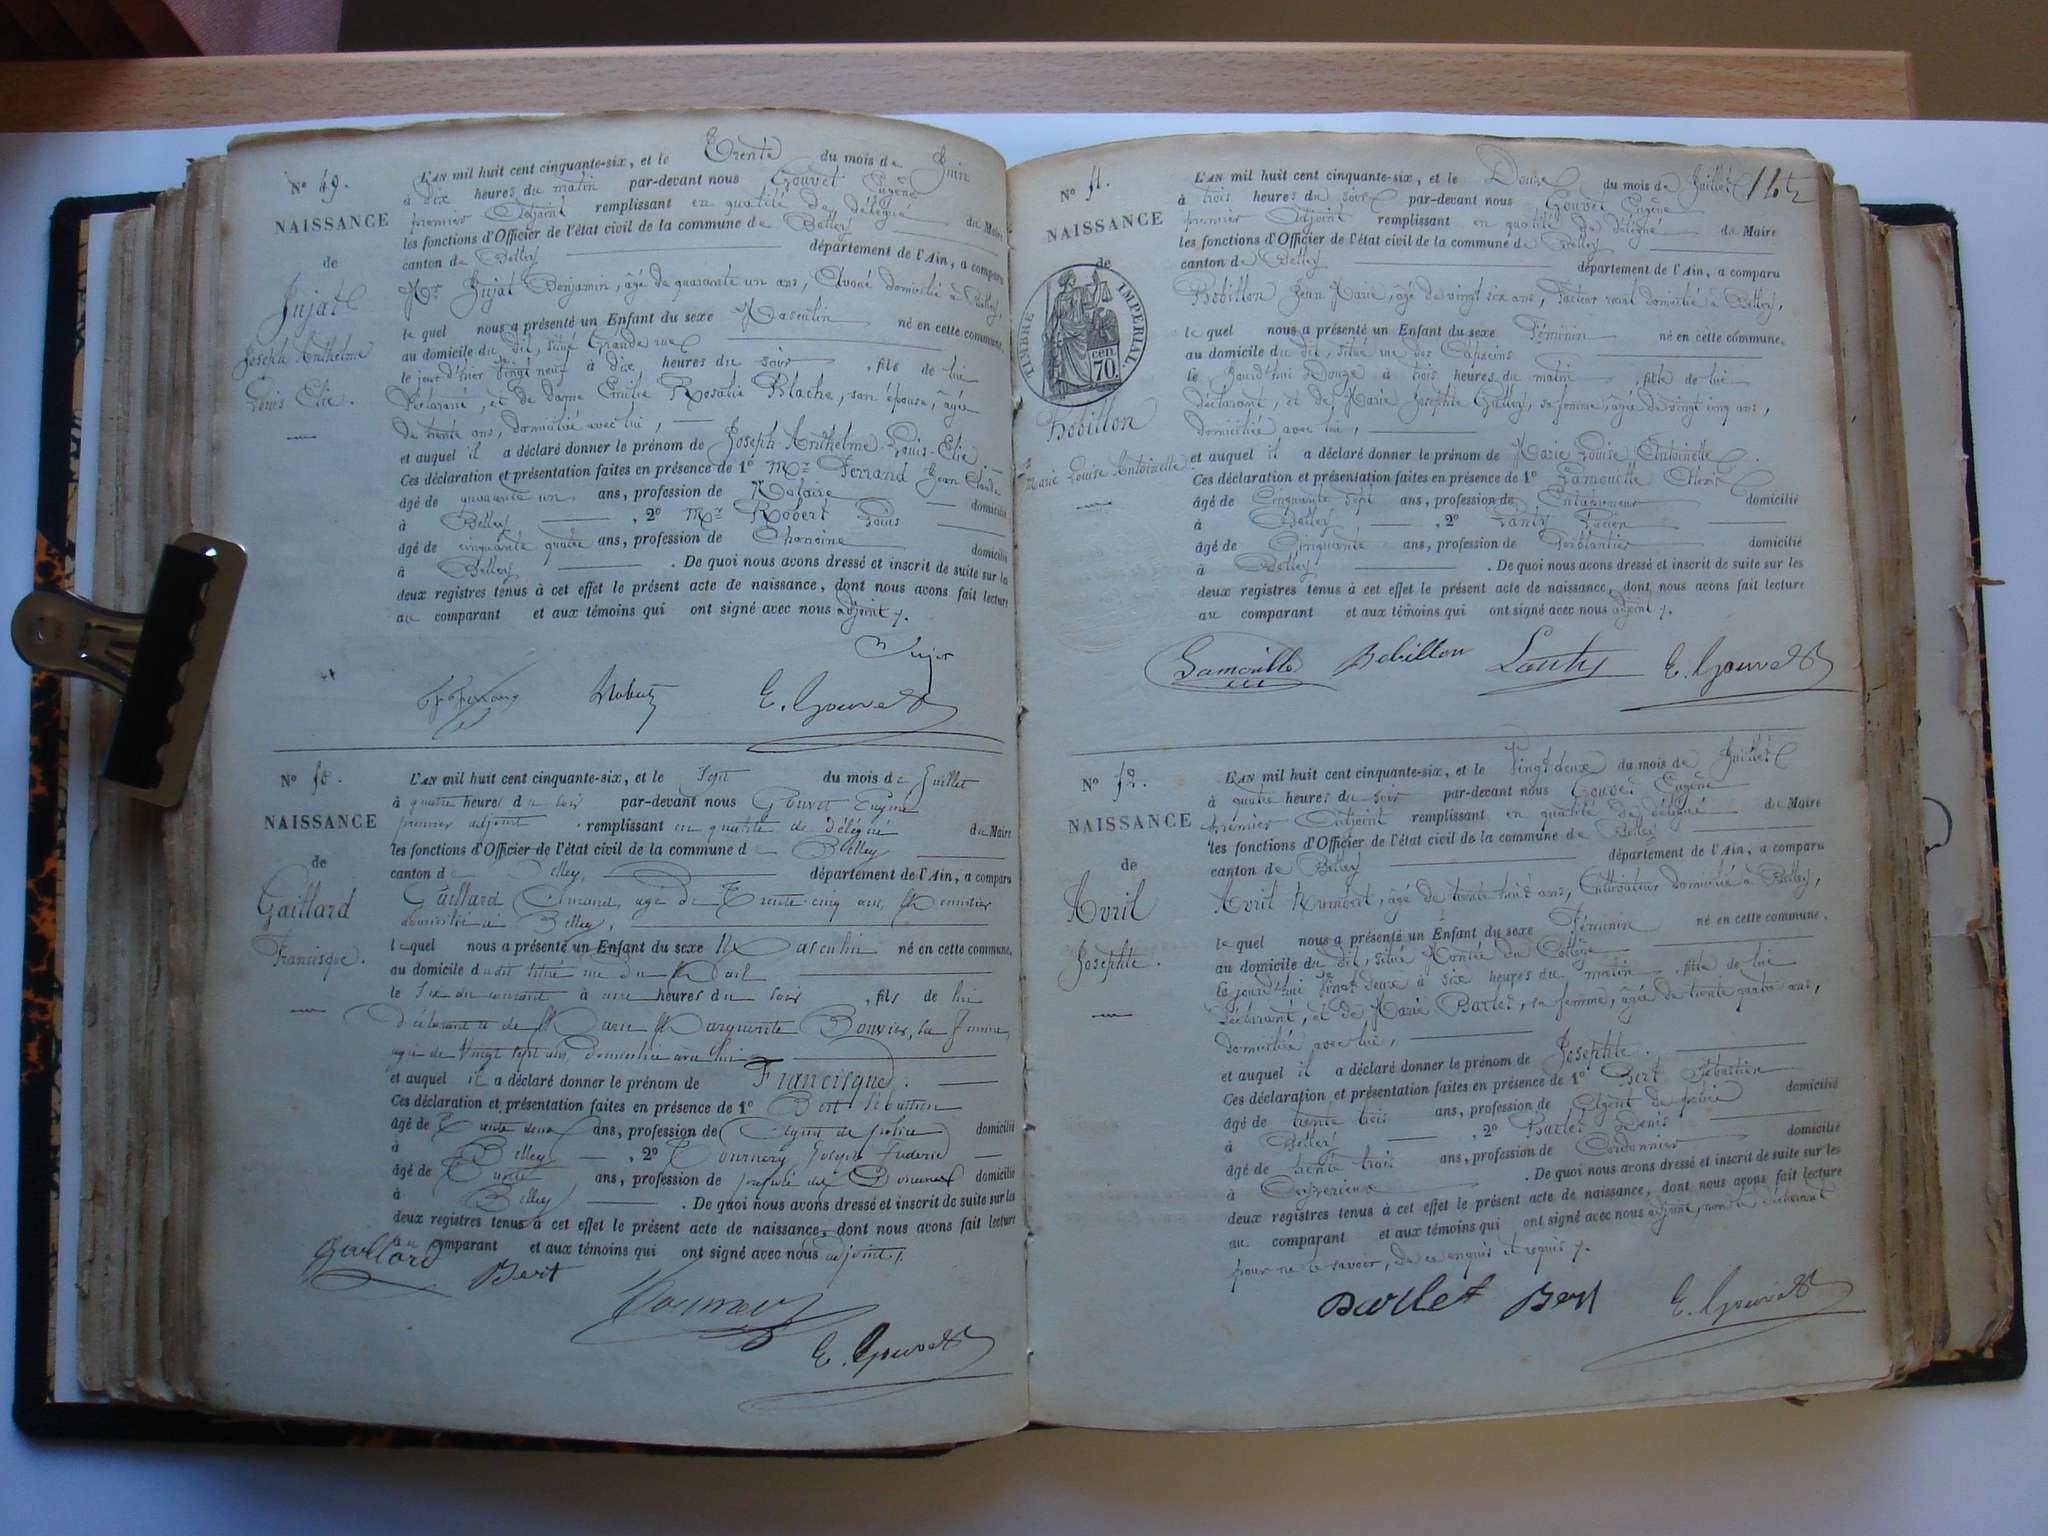 N° 49.
NAISSANCE
de
Jujat
Joseph Anthelme
Louis Elie.
L'AN mil huit cent cinquante-six, et le Trente du mois de Juin
à dix heures du matin par-devant nous Gouvet Eugène
premier Adjoint remplissant en qualité de délégué du Maire
les fonctions d'Officier de l'état civil de la commune de Belley
canton de Belley département de l'Ain, a comparu
Mr Jujat Benjamin, âgé de quarante un ans, Avoué domicilié à Belley,
le quel nous a présenté un Enfant du sexe Masculin né en cette commune,
au domicile du dit, situé Grande rue
le jour d'hier vingt neuf à dix heures du soir, fils de lui
déclarant, et de dame Emilie Rosalie Blache, son épouse, âgée
de trente ans, domiciliée avec lui,
et auquel il a déclaré donner le prénom de Joseph-Anthelme-Louis-Elie.
Ces déclaration et présentation faites en présence de 1° Mr Ferrand Jean Claude
âgé de quarante un ans, profession de Notaire domicilié
à Belley, 2° Mr Robert Louis
âgé de cinquante quatre ans, profession de Chanoine domicilié
à Belley. De quoi nous avons dressé et inscrit de suite sur les
deux registres tenus à cet effet le présent acte de naissance, dont nous avons fait lecture
au comparant et aux témoins qui ont signé avec nous adjoint.
Jujat
Ferrand Robert E. Gouvet
N° 50.
NAISSANCE
de
Gaillard
Francisque.
L'AN mil huit cent cinquante-six, et le Sept du mois de Juillet
à quatre heures du soir par-devant nous Gouvet Eugène
premier adjoint remplissant en qualité de délégué du Maire
les fonctions d'Officier de l'état civil de la commune de Belley
canton de Belley, département de l'Ain, a comparu
Gaillard Armand, âgé de Trente cinq ans, Menuisier
domicilié à Belley,
le quel nous a présenté un Enfant du sexe Masculin né en cette commune,
au domicile du dit situé rue du Mail
le Six du courant à une heures du soir, fils de lui
déclarant et de Marie Marguerite Bouvier, sa femme,
agée de Vingt sept ans, domiciliée avec lui
et auquel il a déclaré donner le prénom de Francisque.
Ces déclaration et présentation faites en présence de 1° Bert Sébastien
âgé de Trente deux ans, profession de Agent de police domicilié
à Belley, 2° Tournery Joseph Frédéric
âgé de Trente ans, profession de préposé des Douanes domicilié
à Belley. De quoi nous avons dressé et inscrit de suite sur les
deux registres tenus à cet effet le présent acte de naissance, dont nous avons fait lecture
au comparant et aux témoins qui ont signé avec nous adjoint.
Gaillard Bert
Tournery
E. Gouvet
N° 51.
NAISSANCE
de
TIMBRE IMPERIAL.
70 cen
Bobillon
Marie Louise Antoinette
L'AN mil huit cent cinquante-six, et le Douze du mois de Juillet
à trois heures du soir par-devant nous Gouvet Eugène
premier Adjoint remplissant en qualité de délégué du Maire
les fonctions d'Officier de l'état civil de la commune de Belley
canton de Belley département de l'Ain, a comparu
Bobillon Jean Marie, âgé de vingt six ans, facteur rural domicilié à Belley,
le quel nous a présenté un Enfant du sexe Féminin né en cette commune,
au domicile du dit, situé rue des Capucins
le Jourd'hui Douze à trois heures du matin, fille de lui
déclarant, et de Marie Josephte Gallay, sa femme, âgée de vingt cinq ans,
domiciliée avec lui,
et auquel il a déclaré donner le prénom de Marie Louise Antoinette.
Ces déclaration et présentation faites en présence de 1° Gamouille Alexis
âgé de Cinquante sept ans, profession de Entrepreneur domicilié
à Belley, 2° Lanty Lucien
âgé de Cinquante ans, profession de Ferblantier domicilié
à Belley. De quoi nous avons dressé et inscrit de suite sur les
deux registres tenus à cet effet le présent acte de naissance, dont nous avons fait lecture
au comparant et aux témoins qui ont signé avec nous adjoint.
Gamouille Bobillon Lanty E. Gouvet
N° 52.
NAISSANCE
de
Avril
Josephte.
L'AN mil huit cent cinquante-six, et le Vingt deux du mois de Juillet
à quatre heures du soir par-devant nous Gouvet Eugène
premier Adjoint remplissant en qualité de délégué du Maire
les fonctions d'Officier de l'état civil de la commune de Belley
canton de Belley département de l'Ain, a comparu
Avril Humbert, âgé de trente huit ans, Cultivateur domicilié à Belley,
le quel nous a présenté un Enfant du sexe Féminin né en cette commune,
au domicile du dit, situé Montée du Collège
le jourd'hui vingt deux à six heures du matin, fille de lui
déclarant, et de Marie Barlet, sa femme, âgée de trente quatre ans,
domiciliée avec lui,
et auquel il a déclaré donner le prénom de Josephte.
Ces déclaration et présentation faites en présence de 1° Bert Sébastien
âgé de trente trois ans, profession de Agent de police domicilié
à Belley, 2° Barlet Denis
âgé de trente trois ans, profession de Cordonnier domicilié
à Ceyzérieux. De quoi nous avons dressé et inscrit de suite sur les
deux registres tenus à cet effet le présent acte de naissance, dont nous avons fait lecture
au comparant et aux témoins qui ont signé avec nous adjoint, non le déclarant
pour ne le savoir, de ce enquis et requis.
Barlet Bert E. Gouvet